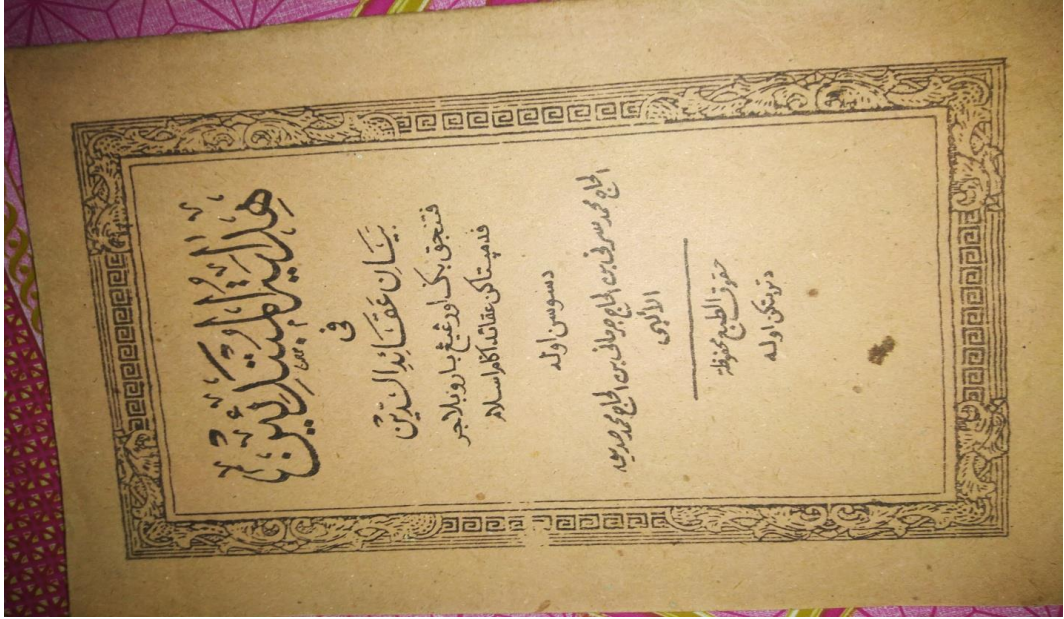 هِدَايَةُ الْمُبْتَدِئِيْنَ
فى
بَيَانِ عَقَائِدِ الدِّيْنِ
فتنجق بݢ اورڠ يڠ بارو بلاجر
فد مپتاكن عقائد اݢام اسلام
دسوسن اوله
الحاج محمد سرنى بن الحاج جرمانى بن الحاج محمد صديق
الالابى
حقوق الطبع محفوظة
دتربتكن اوله